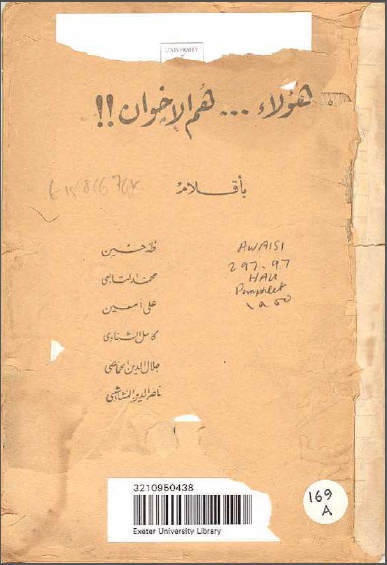 UNIVERSITY
هؤلاء ... هم الإخوان !!
بأقلام
طه حسين
محمد التابعي
على أمين
كامل الشناوى
جلال الدين الحمامصي
ناصر الدين النشاشيبي
AWAISI
297.97
HAU
Pamphlet
169
A
3210950438
Exeter University Library